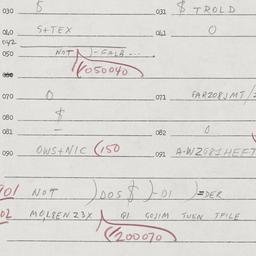 030 5 031 $ TROLD
040 S+TEX 041 0
042
050 NOT )-GALA--- (050040
070 0 071 FAR208JMT/
080 $
081 - 082 0
090 OWS+NIC (150 091 A-WZG81HEFT
901 NOT )DOS$)-01 )=DER
02 MOLBEN.23X G1 GOJIM TUEN TFILE
(200070